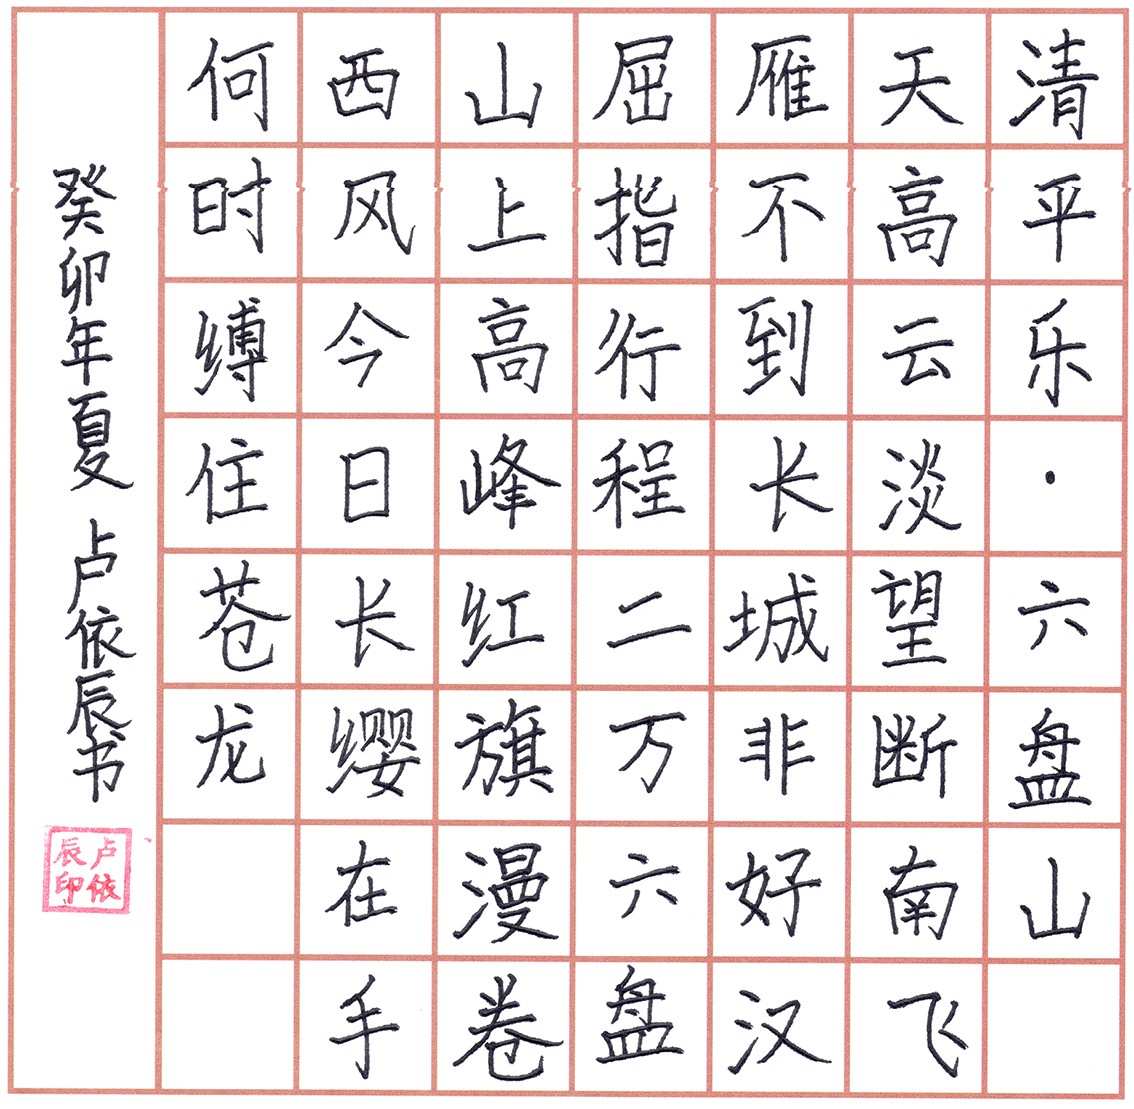 清平乐·六盘山
天高云淡望断南飞
雁不到长城非好汉
屈指行程二万六盘
山上高峰红旗漫卷
西风今日长缨在手
何时缚住苍龙
癸卯年夏 卢依辰书
卢依
辰印